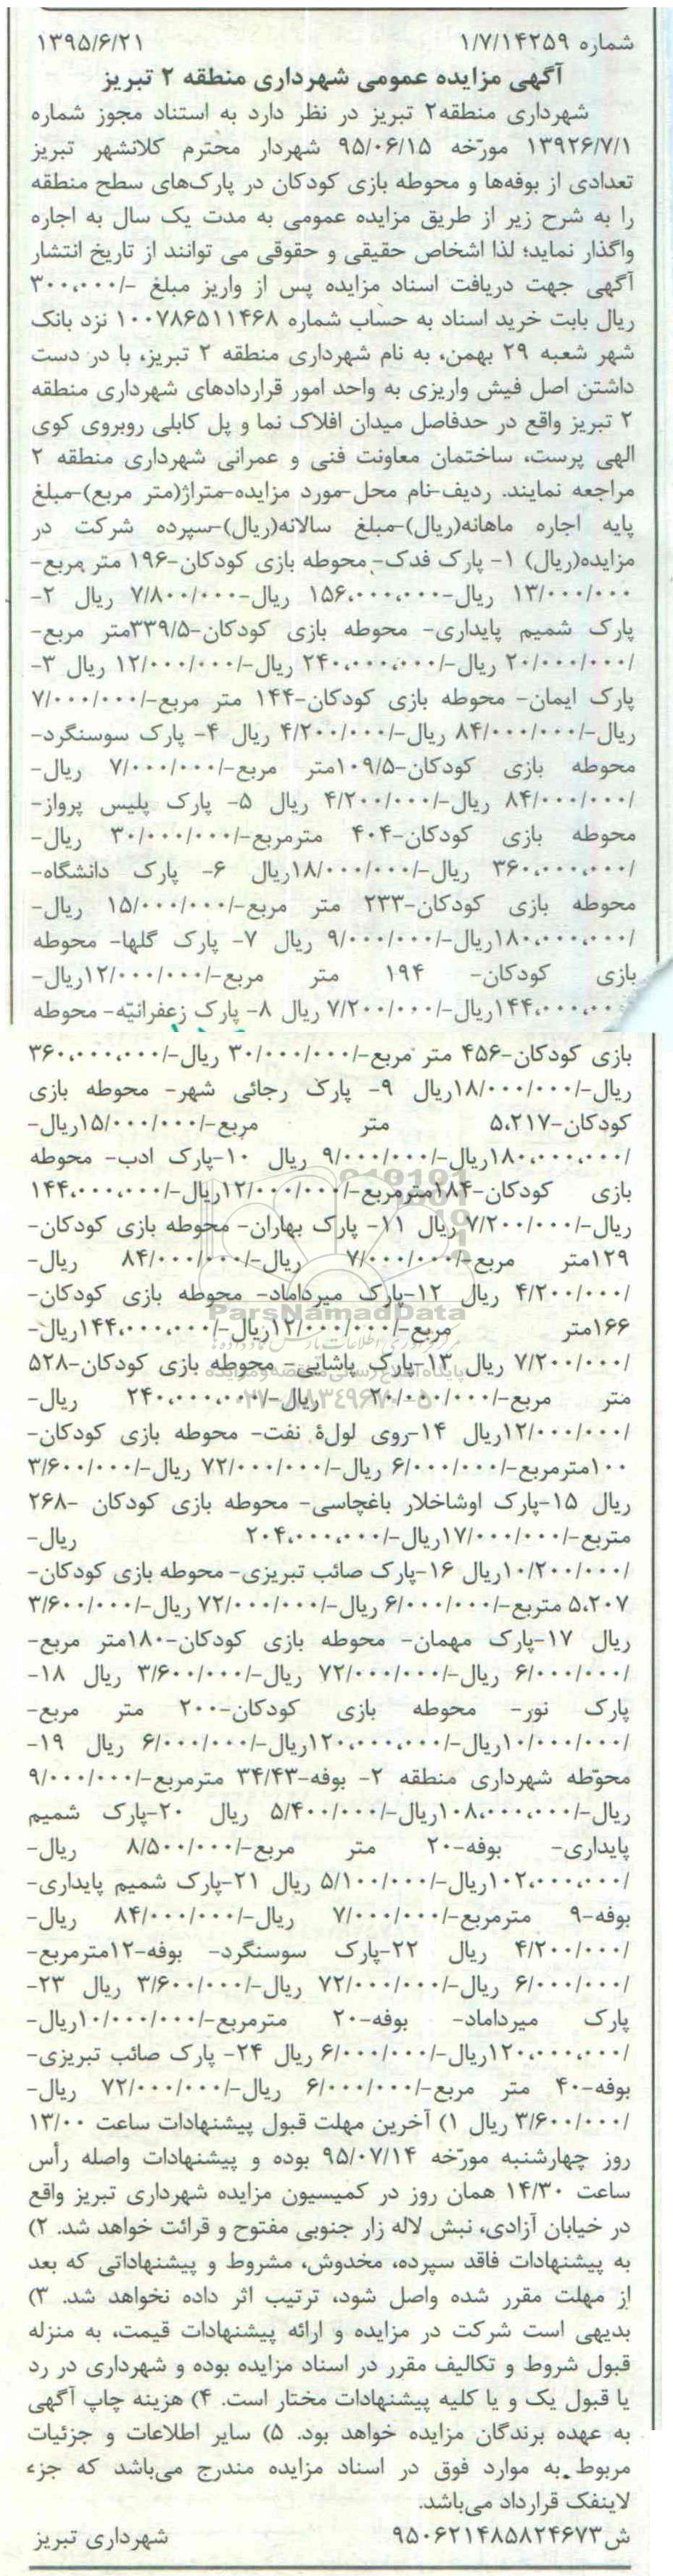 شماره ۱/۷/۱۴۲۵۹ ۱۳۹۵/۶/۲۱
آگهی مزایده عمومی شهرداری منطقه ۲ تبریز
شهرداری منطقه۲ تبریز در نظر دارد به استناد مجوز شماره
۱۳۹۲۶/۷/۱ مورّخه ۹۵/۰۶/۱۵ شهردار محترم کلانشهر تبریز
تعدادی از بوفه‌ها و محوطه بازی کودکان در پارک‌های سطح منطقه
را به شرح زیر از طریق مزایده عمومی به مدت یک سال به اجاره
واگذار نماید؛ لذا اشخاص حقیقی و حقوقی می توانند از تاریخ انتشار
آگهی جهت دریافت اسناد مزایده پس از واریز مبلغ -/۳۰۰،۰۰۰
ریال بابت خرید اسناد به حساب شماره ۱۰۰۷۸۶۵۱۱۴۶۸ نزد بانک
شهر شعبه ۲۹ بهمن، به نام شهرداری منطقه ۲ تبریز، با در دست
داشتن اصل فیش واریزی به واحد امور قراردادهای شهرداری منطقه
۲ تبریز واقع در حدفاصل میدان افلاک نما و پل کابلی روبروی کوی
الهی پرست، ساختمان معاونت فنی و عمرانی شهرداری منطقه ۲
مراجعه نمایند. ردیف-نام محل-مورد مزایده-متراژ(متر مربع)-مبلغ
پایه اجاره ماهانه(ریال)-مبلغ سالانه(ریال)-سپرده شرکت در
مزایده(ریال) ۱- پارک فدک- محوطه بازی کودکان-۱۹۶ متر مربع-
۱۳/۰۰۰/۰۰۰ ریال-۱۵۶،۰۰۰،۰۰۰ ریال-۷/۸۰۰/۰۰۰ ریال ۲-
پارک شمیم پایداری- محوطه بازی کودکان-۳۳۹/۵متر مربع-
/۲۰/۰۰۰/۰۰۰ ریال-/۲۴۰،۰۰۰،۰۰۰ ریال-/۱۲/۰۰۰/۰۰۰ ریال ۳-
پارک ایمان- محوطه بازی کودکان-۱۴۴ متر مربع-/۷/۰۰۰/۰۰۰
ریال-/۸۴/۰۰۰/۰۰۰ ریال-/۴/۲۰۰/۰۰۰ ریال ۴- پارک سوسنگرد-
محوطه بازی کودکان-۱۰۹/۵متر مربع-/۷/۰۰۰/۰۰۰ ریال-
/۸۴/۰۰۰/۰۰۰ ریال-/۴/۲۰۰/۰۰۰ ریال ۵- پارک پلیس پرواز-
محوطه بازی کودکان-۴۰۴ مترمربع-/۳۰/۰۰۰/۰۰۰ ریال-
/۳۶۰،۰۰۰،۰۰۰ ریال-/۱۸/۰۰۰/۰۰۰ریال ۶- پارک دانشگاه-
محوطه بازی کودکان-۲۳۳ متر مربع-/۱۵/۰۰۰/۰۰۰ ریال-
/۱۸۰،۰۰۰،۰۰۰ریال-/۹/۰۰۰/۰۰۰ ریال ۷- پارک گلها- محوطه
بازی کودکان- ۱۹۴ متر مربع-/۱۲/۰۰۰/۰۰۰ریال-
۱۴۴،۰۰۰،۰۰۰ریال-/۷/۲۰۰/۰۰۰ ریال ۸- پارک زعفرانیّه- محوطه
بازی کودکان-۴۵۶ متر مربع-/۳۰/۰۰۰/۰۰۰ ریال-/۳۶۰،۰۰۰،۰۰۰
ریال-/۱۸/۰۰۰/۰۰۰ریال ۹- پارک رجائی شهر- محوطه بازی
کودکان-۵،۲۱۷ متر مربع-/۱۵/۰۰۰/۰۰۰ریال-
/۱۸۰،۰۰۰،۰۰۰ریال-/۹/۰۰۰/۰۰۰ ریال ۱۰-پارک ادب- محوطه
بازی کودکان-۱۸۴مترمربع-/۱۲/۰۰۰/۰۰۰ریال-/۱۴۴،۰۰۰،۰۰۰
ریال-/۷/۲۰۰/۰۰۰ ریال ۱۱- پارک بهاران- محوطه بازی کودکان-
۱۲۹متر مربع-/۷/۰۰۰/۰۰۰ ریال-/۸۴/۰۰۰/۰۰۰ ریال-
/۴/۲۰۰/۰۰۰ ریال ۱۲-پارک میرداماد- محوطه بازی کودکان-
۱۶۶متر مربع-/۱۲/۰۰۰/۰۰۰ریال-/۱۴۴،۰۰۰،۰۰۰ریال-
/۷/۲۰۰/۰۰۰ ریال ۱۳-پارک پاشایی- محوطه بازی کودکان-۵۲۸
متر مربع-/۲۰/۰۰۰/۰۰۰ ریال-/۲۴۰،۰۰۰،۰۰۰ ریال-
/۱۲/۰۰۰/۰۰۰ریال ۱۴-روی لولهٔ نفت- محوطه بازی کودکان-
۱۰۰مترمربع-/۶/۰۰۰/۰۰۰ ریال-/۷۲/۰۰۰/۰۰۰ ریال-/۳/۶۰۰/۰۰۰
ریال ۱۵-پارک اوشاخلار باغچاسی- محوطه بازی کودکان -۲۶۸
متربع-/۱۷/۰۰۰/۰۰۰ریال-/۲۰۴،۰۰۰،۰۰۰ ریال-
/۱۰/۲۰۰/۰۰۰ریال ۱۶-پارک صائب تبریزی- محوطه بازی کودکان-
۵،۲۰۷ متربع-/۶/۰۰۰/۰۰۰ ریال-/۷۲/۰۰۰/۰۰۰ ریال-/۳/۶۰۰/۰۰۰
ریال ۱۷-پارک مهمان- محوطه بازی کودکان-۱۸۰متر مربع-
/۶/۰۰۰/۰۰۰ ریال-/۷۲/۰۰۰/۰۰۰ ریال-/۳/۶۰۰/۰۰۰ ریال ۱۸-
پارک نور- محوطه بازی کودکان-۲۰۰ متر مربع-
/۱۰/۰۰۰/۰۰۰ریال-/۱۲۰،۰۰۰،۰۰۰ریال-/۶/۰۰۰/۰۰۰ ریال ۱۹-
محوّطه شهرداری منطقه ۲- بوفه-۳۴/۴۳ مترمربع-/۹/۰۰۰/۰۰۰
ریال-/۱۰۸،۰۰۰،۰۰۰ریال-/۵/۴۰۰/۰۰۰ ریال ۲۰-پارک شمیم
پایداری- بوفه-۲۰ متر مربع-/۸/۵۰۰/۰۰۰ ریال-
/۱۰۲،۰۰۰،۰۰۰ریال-/۵/۱۰۰/۰۰۰ ریال ۲۱-پارک شمیم پایداری-
بوفه-۹ مترمربع-/۷/۰۰۰/۰۰۰ ریال-/۸۴/۰۰۰/۰۰۰ ریال-
/۴/۲۰۰/۰۰۰ ریال ۲۲-پارک سوسنگرد- بوفه-۱۲مترمربع-
/۶/۰۰۰/۰۰۰ ریال-/۷۲/۰۰۰/۰۰۰ ریال-/۳/۶۰۰/۰۰۰ ریال ۲۳-
پارک میرداماد- بوفه-۲۰ مترمربع-/۱۰/۰۰۰/۰۰۰ریال-
/۱۲۰،۰۰۰،۰۰۰ریال-/۶/۰۰۰/۰۰۰ ریال ۲۴- پارک صائب تبریزی-
بوفه-۴۰ متر مربع-/۶/۰۰۰/۰۰۰ ریال-/۷۲/۰۰۰/۰۰۰ ریال-
/۳/۶۰۰/۰۰۰ ریال ۱) آخرین مهلت قبول پیشنهادات ساعت ۱۳/۰۰
روز چهارشنبه مورّخه ۹۵/۰۷/۱۴ بوده و پیشنهادات واصله رأس
ساعت ۱۴/۳۰ همان روز در کمیسیون مزایده شهرداری تبریز واقع
در خیابان آزادی، نبش لاله زار جنوبی مفتوح و قرائت خواهد شد. ۲)
به پیشنهادات فاقد سپرده، مخدوش، مشروط و پیشنهاداتی که بعد
از مهلت مقرر شده واصل شود، ترتیب اثر داده نخواهد شد. ۳)
بدیهی است شرکت در مزایده و ارائه پیشنهادات قیمت، به منزله
قبول شروط و تکالیف مقرر در اسناد مزایده بوده و شهرداری در رد
یا قبول یک و یا کلیه پیشنهادات مختار است. ۴) هزینه چاپ آگهی
به عهده برندگان مزایده خواهد بود. ۵) سایر اطلاعات و جزئیات
مربوط به موارد فوق در اسناد مزایده مندرج می‌باشد که جزء
لاینفک قرارداد می‌باشد.
ش۹۵۰۶۲۱۴۸۵۸۲۴۶۷۳ شهرداری تبریز
ParsNamadData